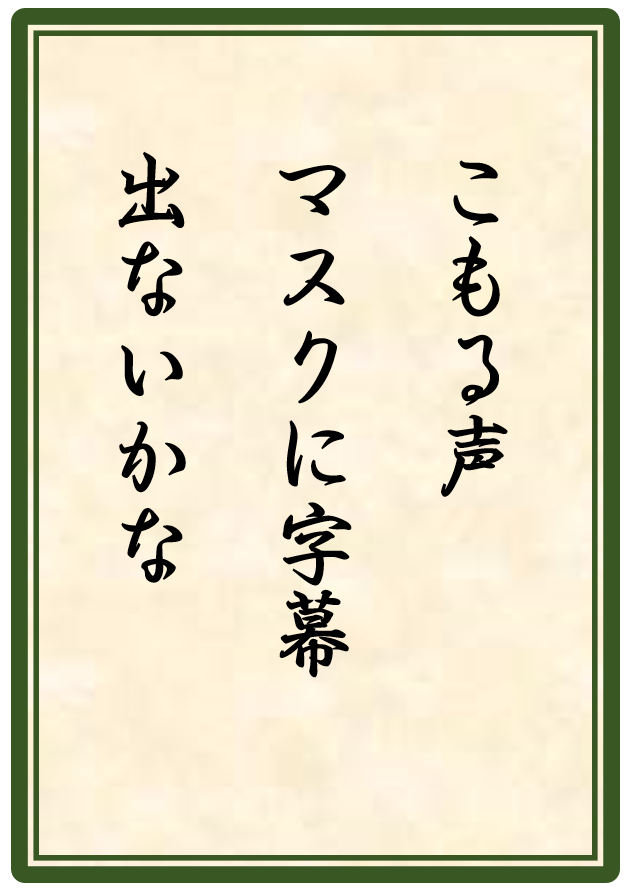 こもる声
マスクに字幕
出ないかな